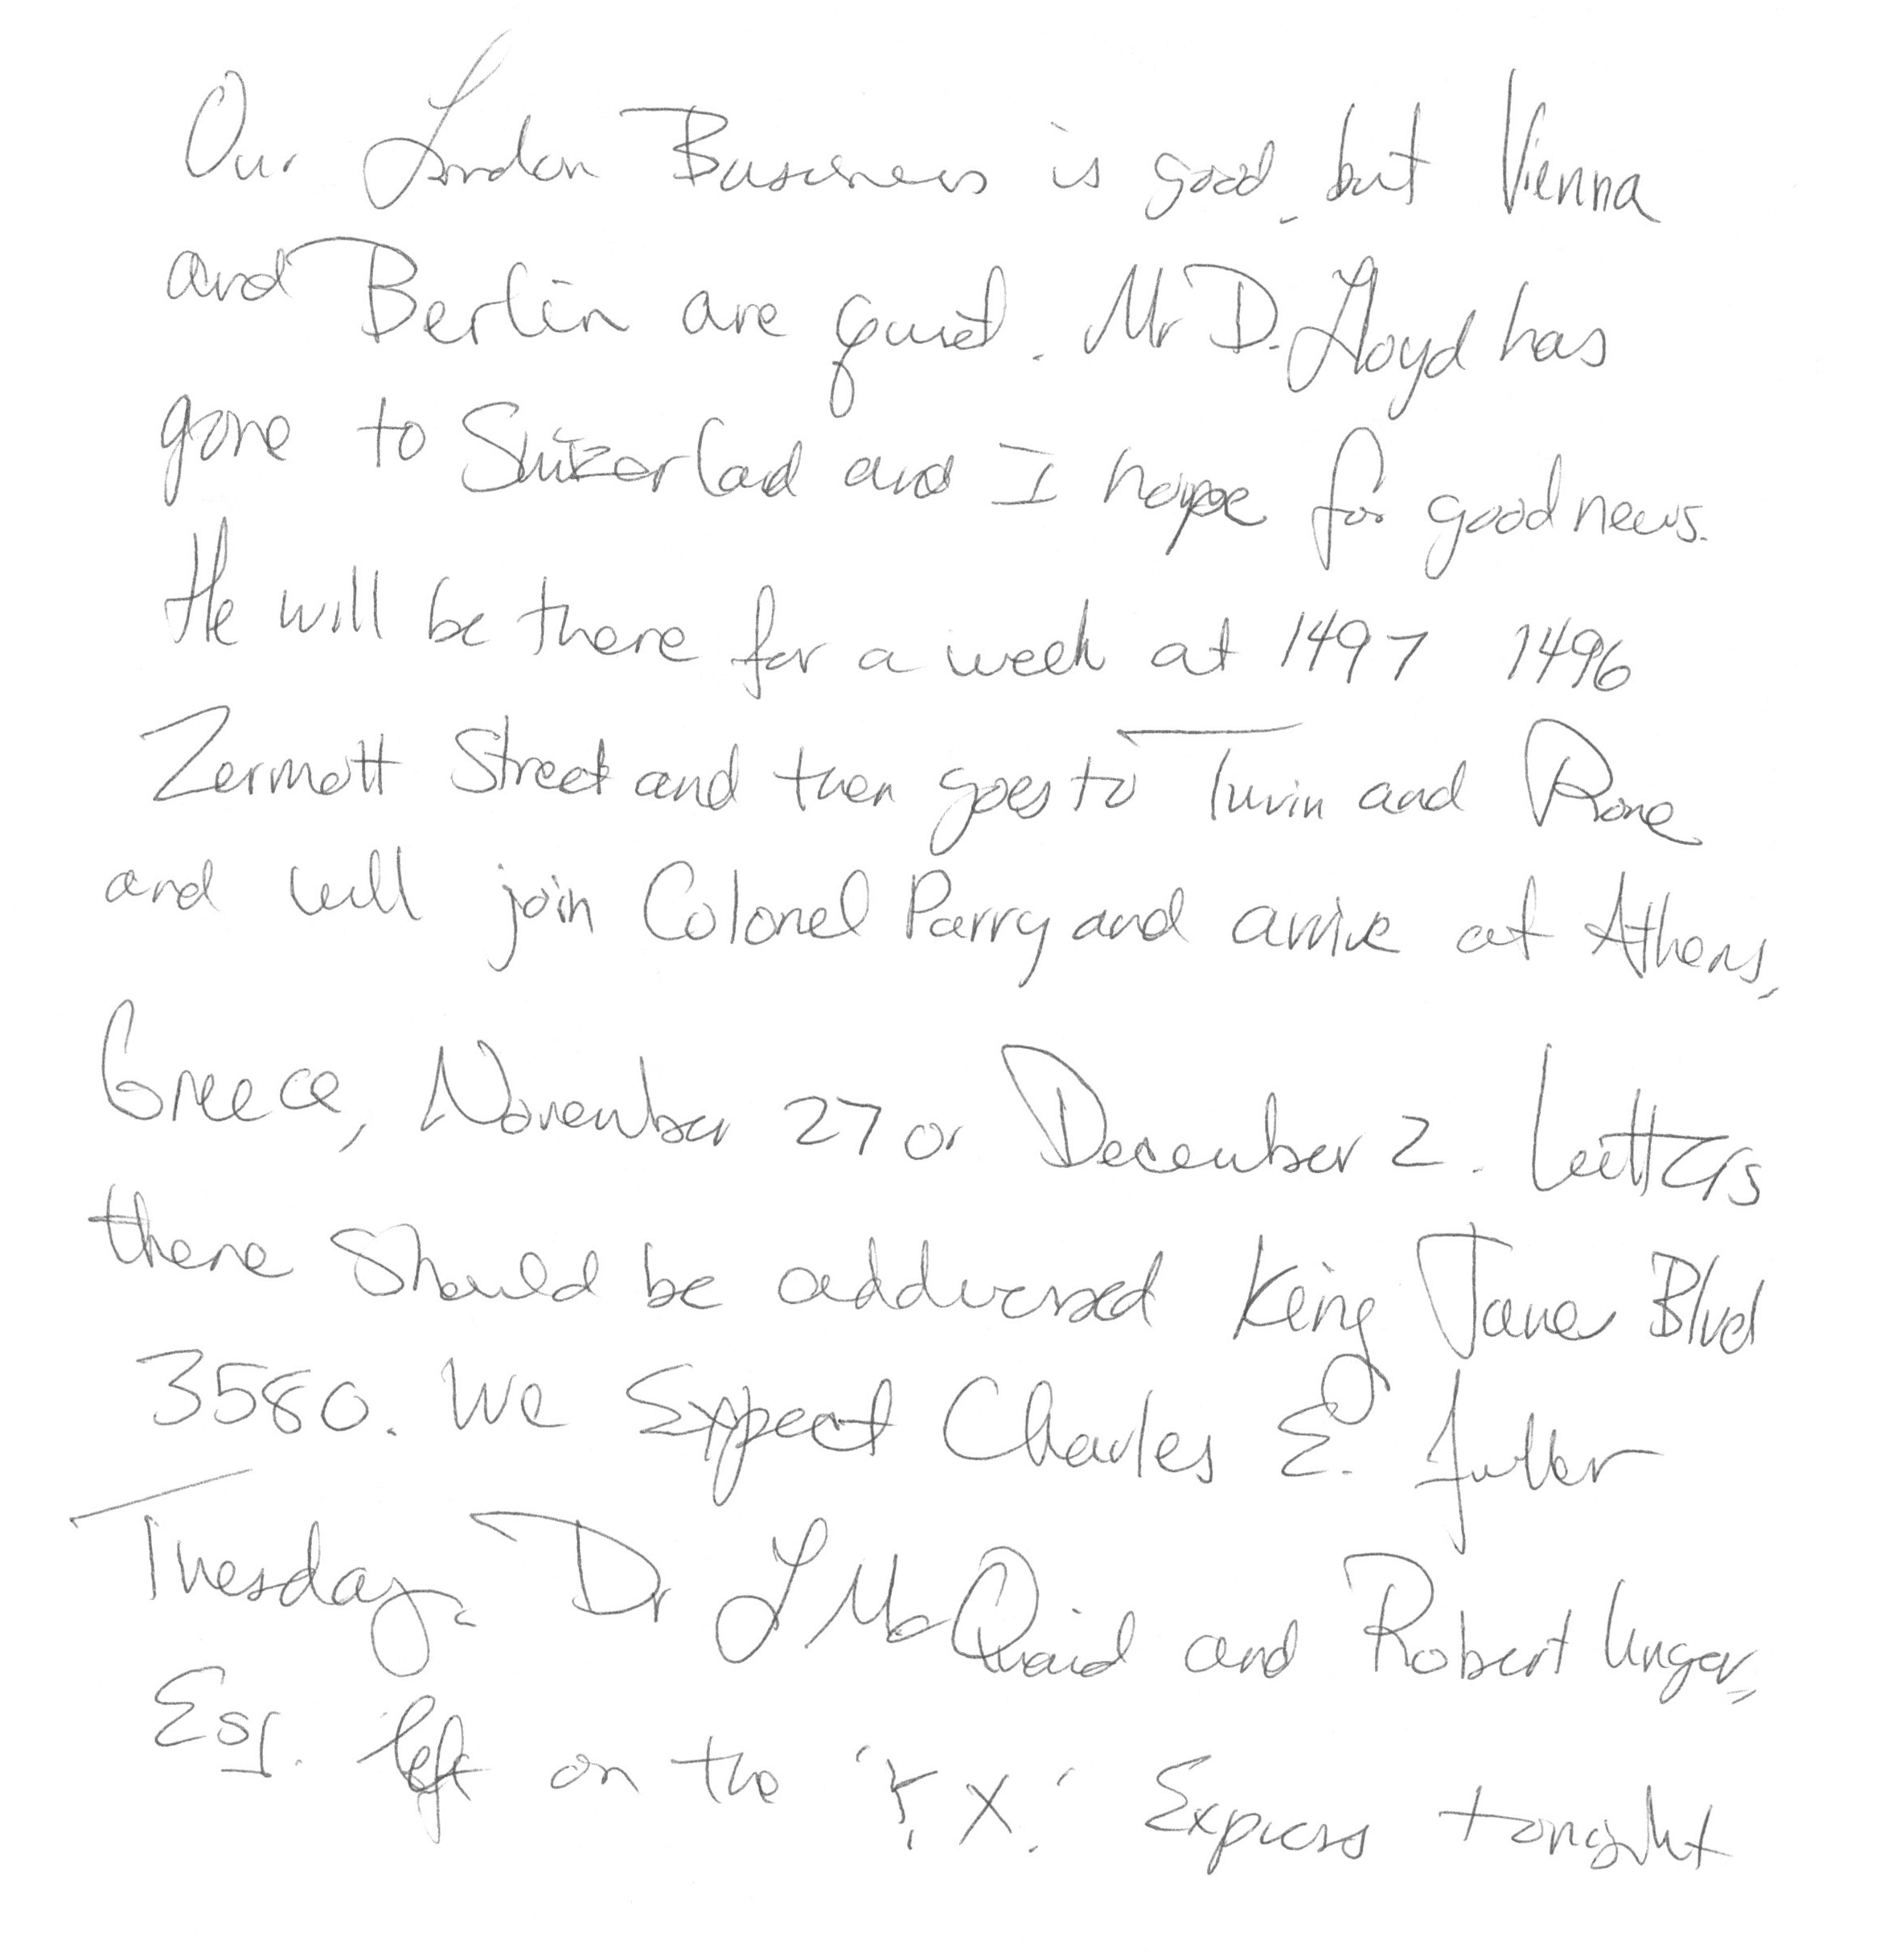 Our London Business is good, but Vienna
and Berlin are quiet. Mr D. Lloyd has
gone to Switzerlad and I hope for good news.
He will be there for a week at 1497 1496
Zermott Street and then goes to Turin and Rome
and will join Colonel Parry and arrive at Athens,
Greece, November 27 or December 2. Letters
there Should be addressed King James Blvd
3580. We Expect Charles E. Fuller
Tuesday. Dr L McQuaid and Robert Unger,
Esq. left on the 'Y. X.' Express tonight